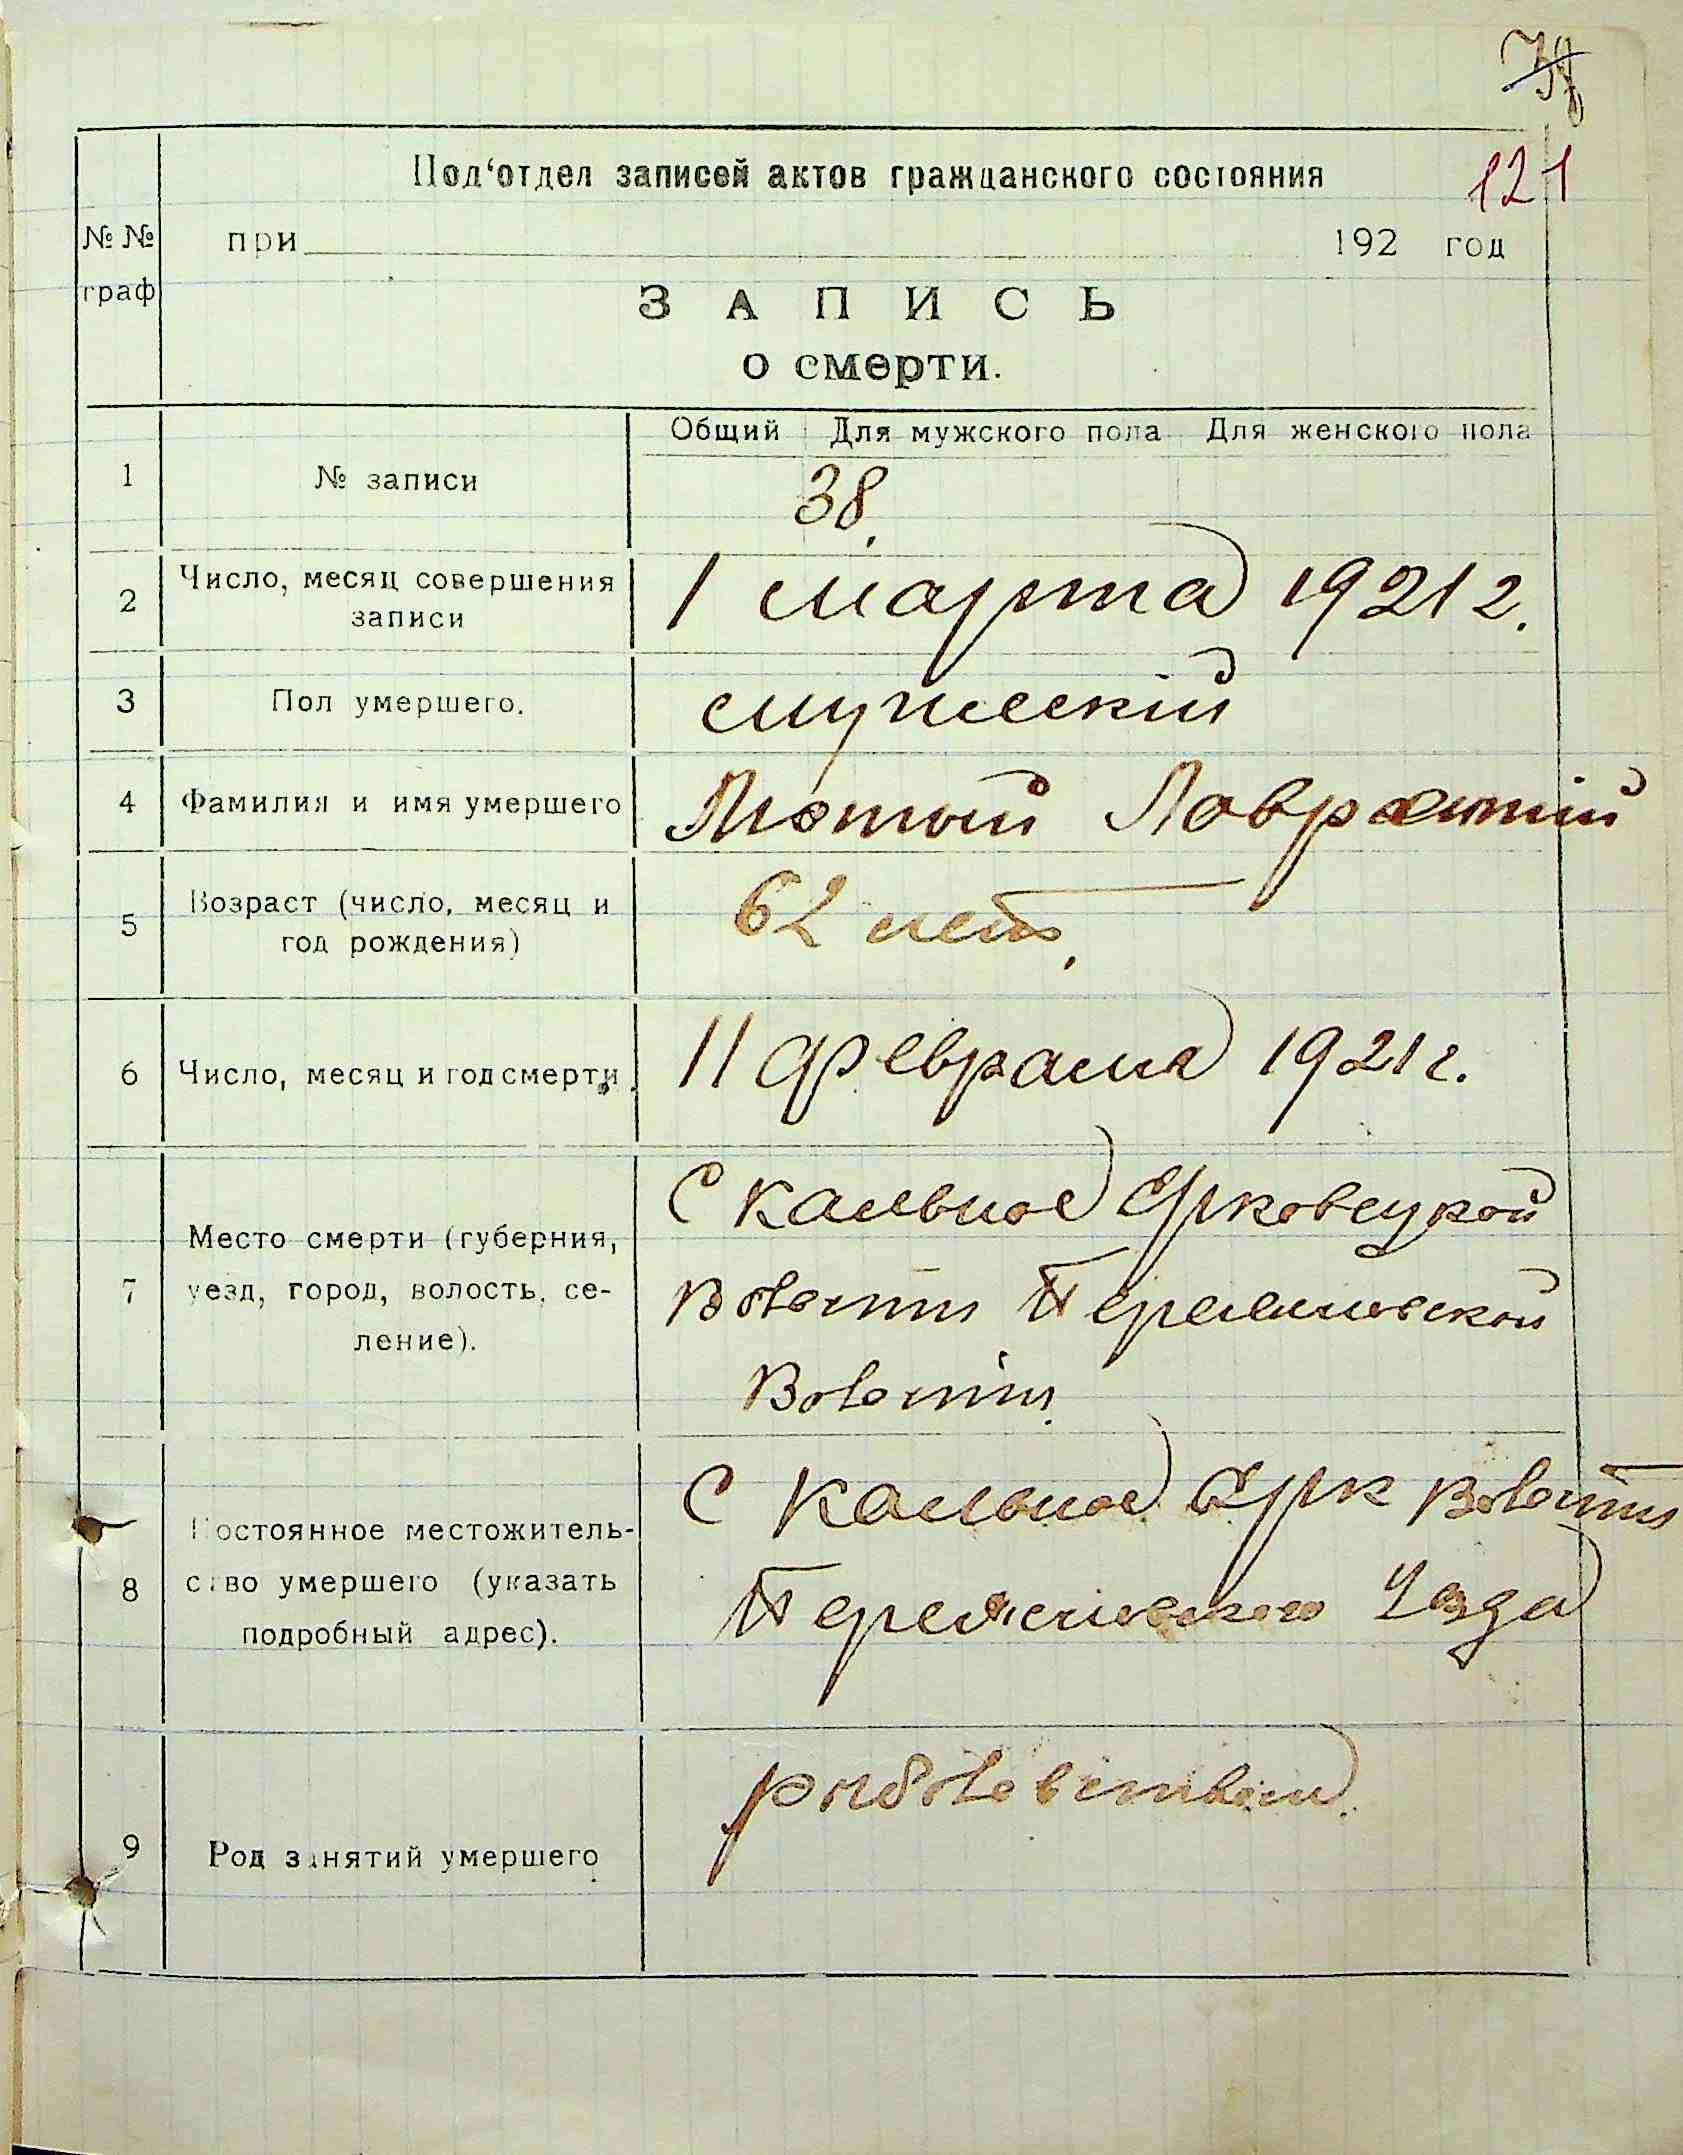 121
Под'отдел записей актов гражданского состояния
№№ граф
при 192 год
ЗАПИСЬ
о смерти.
Общий Для мужского пола Для женского пола
1 № записи 38.
2 Число, месяц совершения записи
1 марта 1921 г.
3 Пол умершего. мужескій
4 Фамилия и имя умершего Лютый Лаврентій
5 Возраст (число, месяц и год рождения)
62 лет
6 Число, месяц и год смерти. 11 февраля 1921 г.
7 Место смерти (губерния,
уезд, город, волость, се-
ление).
С Кальное Ерковецкой
Волости Переяславской
Волости
8 Постоянное местожитель-
ство умершего (указать
подробный адрес).
С Кальное Ерк Волости
Переяславского Уезда
9 Род занятий умершего